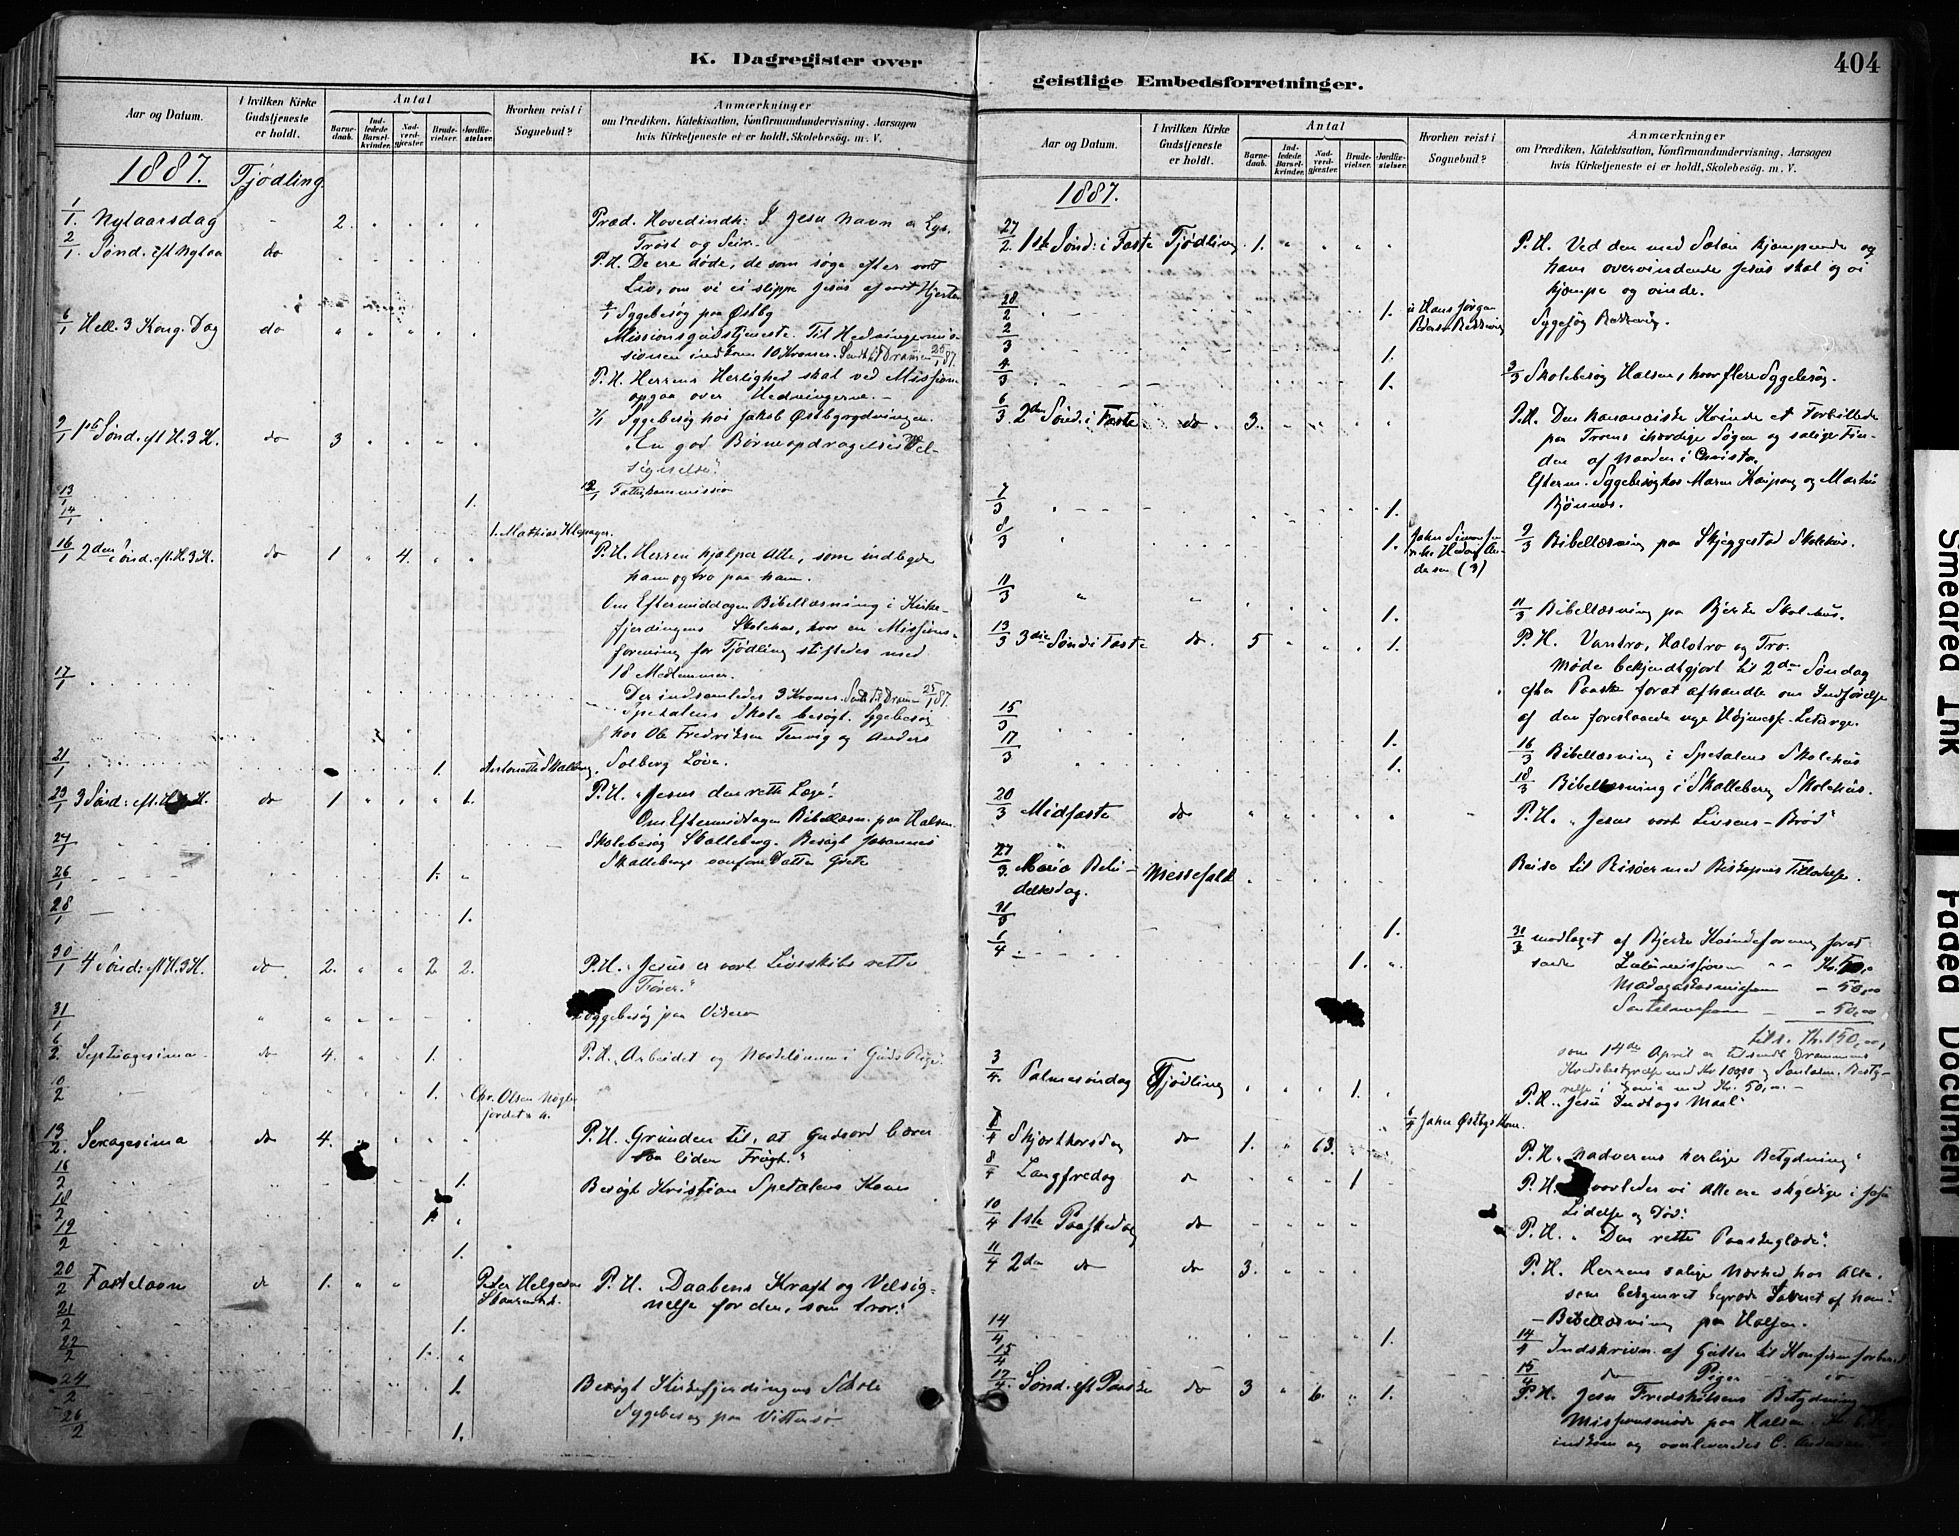 K. Dagregister over
Aar og Datum.
I hvilken Kirke Gudstjeneste er holdt.
Antal
Barnedaab.
Indledede Barselkvinder.
Nadverdgjester.
Brudevielser.
Jordfæstelser.
Hvorhen reist i Sognebud?
Anmærkninger
om Prædiken, Katekisation, Konfirmandundervisning, Aarsagen
hvis Kirketjeneste ei er holdt, Skolebesøg. m. V.
1887. Tjødling
1/1. Nytaarsdag 2. Præd. Hovedindh: I Jesu Navn
Trøst og Seir.
2/1. Sønd. eft Nytaar do P.H. De ere døde, de som søge efter vort
Liv, om vi ei slippe Jesus af vort Hjerte
Sygebesøg paa Østby
6/1 Hell. 3 Kong. Dag do Missionsgudstjeneste. Til Hedningemis-
sionen indkom 10 Kroner. Sendt til Drammen 25/1 87.
P.H. Herrens Herlighed skal ved Missionen
opgaa over Hedningerne.
7/1 Sygebesøg hos Jakob Østbyrydningen.
9/1 1ste Sønd. eft H. 3 K. do 3 En god Børneopdragelses Vel-
signelse".
13/1 1. 12/1 Fattigkommission
14/1 1. Mathias Klepager.
16/1 2den Sønd. eft. H. 3 K. do 1 4. P.H. Herren hjælper Alle, som indbyde
ham og tro paa ham.
Om Eftermiddagen Bibellæsning i Kirke-
fjerdingens Skolehus, hvor en Missions-
forening for Tjødling stiftedes med
18 Medlemmer.
17/1 Der indsamledes 3 Kroner. Sendt til Drammen 25/1 87.
Spetalens Skole besøgt. Sygebesøg
hos Ole Fredriksen Tenvig og Anders
21/1 1. Solberg Løve.
23/1 3 Sønd: eft. H. 3 K. do 1 1. P.H. "Jesus den rette Læge".
Om Eftermiddagen Bibellæsn. paa Halsen.
24/1 Skolebesøg Skalleberg. Besøgt Johannes
Skallebergs Datter Grete
26/1 1.
28/1 1.
30/1 4 Sønd: eft H. 3 K. do 2. 2. 2. P.H. "Jesus er vort Livsskibs rette
Fører."
31/1 Sygebesøg paa
6/2. Septuagesima do 4. 1. P.H. Arbeidet og Nadelønnen i Guds Rige.
10/2 1. Chr. Olsen
13/2. Sexagesima do 4. P.H. Grunden til, at Guds ord bærer
saa liden Frugt."
16/2 1. Besøgt Kristian Spetalens Kone
18/2 1.
19/2 1.
20/2 Fastelavn do 1. Peter Helgesen P.H. Daabens Kraft og Velsig-
nelse for den, som tror."
21/2 1.
22/2 1.
24/2 1. Besøgt Kirkefjerdingens Skole
Sygebesøg paa Vittersø
26/2 1.
geistlige Embedsforretninger.
404
Aar og Datum.
I hvilken Kirke Gudstjeneste er holdt.
Antal
Barnedaab.
Indledede Barselkvinder.
Nadverdgjester.
Brudevielser.
Jordfæstelser.
Hvorhen reist i Sognebud?
Anmærkninger
om Prædiken, Katekisation, Konfirmandundervisning, Aarsagen
hvis Kirketjeneste ei er holdt, Skolebesøg. m. V.
1887.
27/2. 1ste Sønd: i Faste Tjødling 1. P.H. Ved den med Satan kjæmpende og
ham overvindende Jesus skal og vi
kjæmpe og vinde.
28/2 1. Hans Jørgen
2/3 1.
4/3 1. 3/3 Skolebesøg Halsen, hvor flere Sygebesøg.
6/3 2den Sønd: i Faste do 3. P.H. Den kananæiske Kvinde et Forbillede
paa Troens ihærdige Søgen og salige Fin-
den af Naaden i Christo.
Efterm. Sygebesøg hos Maren Kaupang og
Bjønnes.
7/3 1.
8/3 1. 9/3 Bibellæsning paa Skjeggestad Skolehus.
11/3 1. 11/3 Bibellæsning paa Bjerke Skolehus.
13/3 3die Sønd i Faste do 5 1. P.H. Vantro, Halvtro og Tro.
Møde bekjendtgjort til 2den Søndag
efter Paaske forat afhandle om Indførelse
af den foreslaaede nye Høimesse-Liturgi.
15/3 1. 16/3 Bibellæsning i Spetalens Skolehus
17/3 1. 18/3 Bibellæsning i Skalleberg Skolehus.
20/3 Midfaste do P.H. "Jesus vort Livsens-Brød"
27/3. Mariæ Bebu-
delsesdag. Messefald Reise til Risøer med Biskopens Tilladelse.
31/3 1. 31/3 modtaget af Bjerke Kvindeforening
1/4 1. Zulumissionen Kr. 50,00
Madagaskarmissionen - 50,00
Santalmissionen - 50,00
tils. Kr. 150,00,
som 14de April er tilsendt Drammens
Kredsbestyrelse med Kr 100,00 og Santalm. Besty-
relse i med Kr. 50,00.
3/4. Palmesøndag Tjødling 1. P.H. "Jesu Indtogs Maal"
6/4
7/4 Skjærthorsdag do 1. 63. P.H. Nadverens herlige Betydning"
8/4 Langfredag do 1 P.H. Hvorledes vi Alle ere skyldige i Jesu
Lidelse og Død".
10/4 1ste Paaskedag do P.H. "Den rette Paaskeglæde".
11/4 2den do do 3. P.H. Herrens salige Nærhed hos Alle,
som begrædt Savnet af ham".
- Bibellæsning paa Halsen.
14/4 1. 14/4 Indskrivn. af Gutter til Konfirm.forbered
15/4 15/4 do Piger do
17/4. Sønd. eft Paaske do 3 6. 1. P.H. Jesu Fredshilsens Betydning
Missionsmøde paa Halsen.
indkom og overleveredes C. Andersen
Smeared Ink
Faded Document